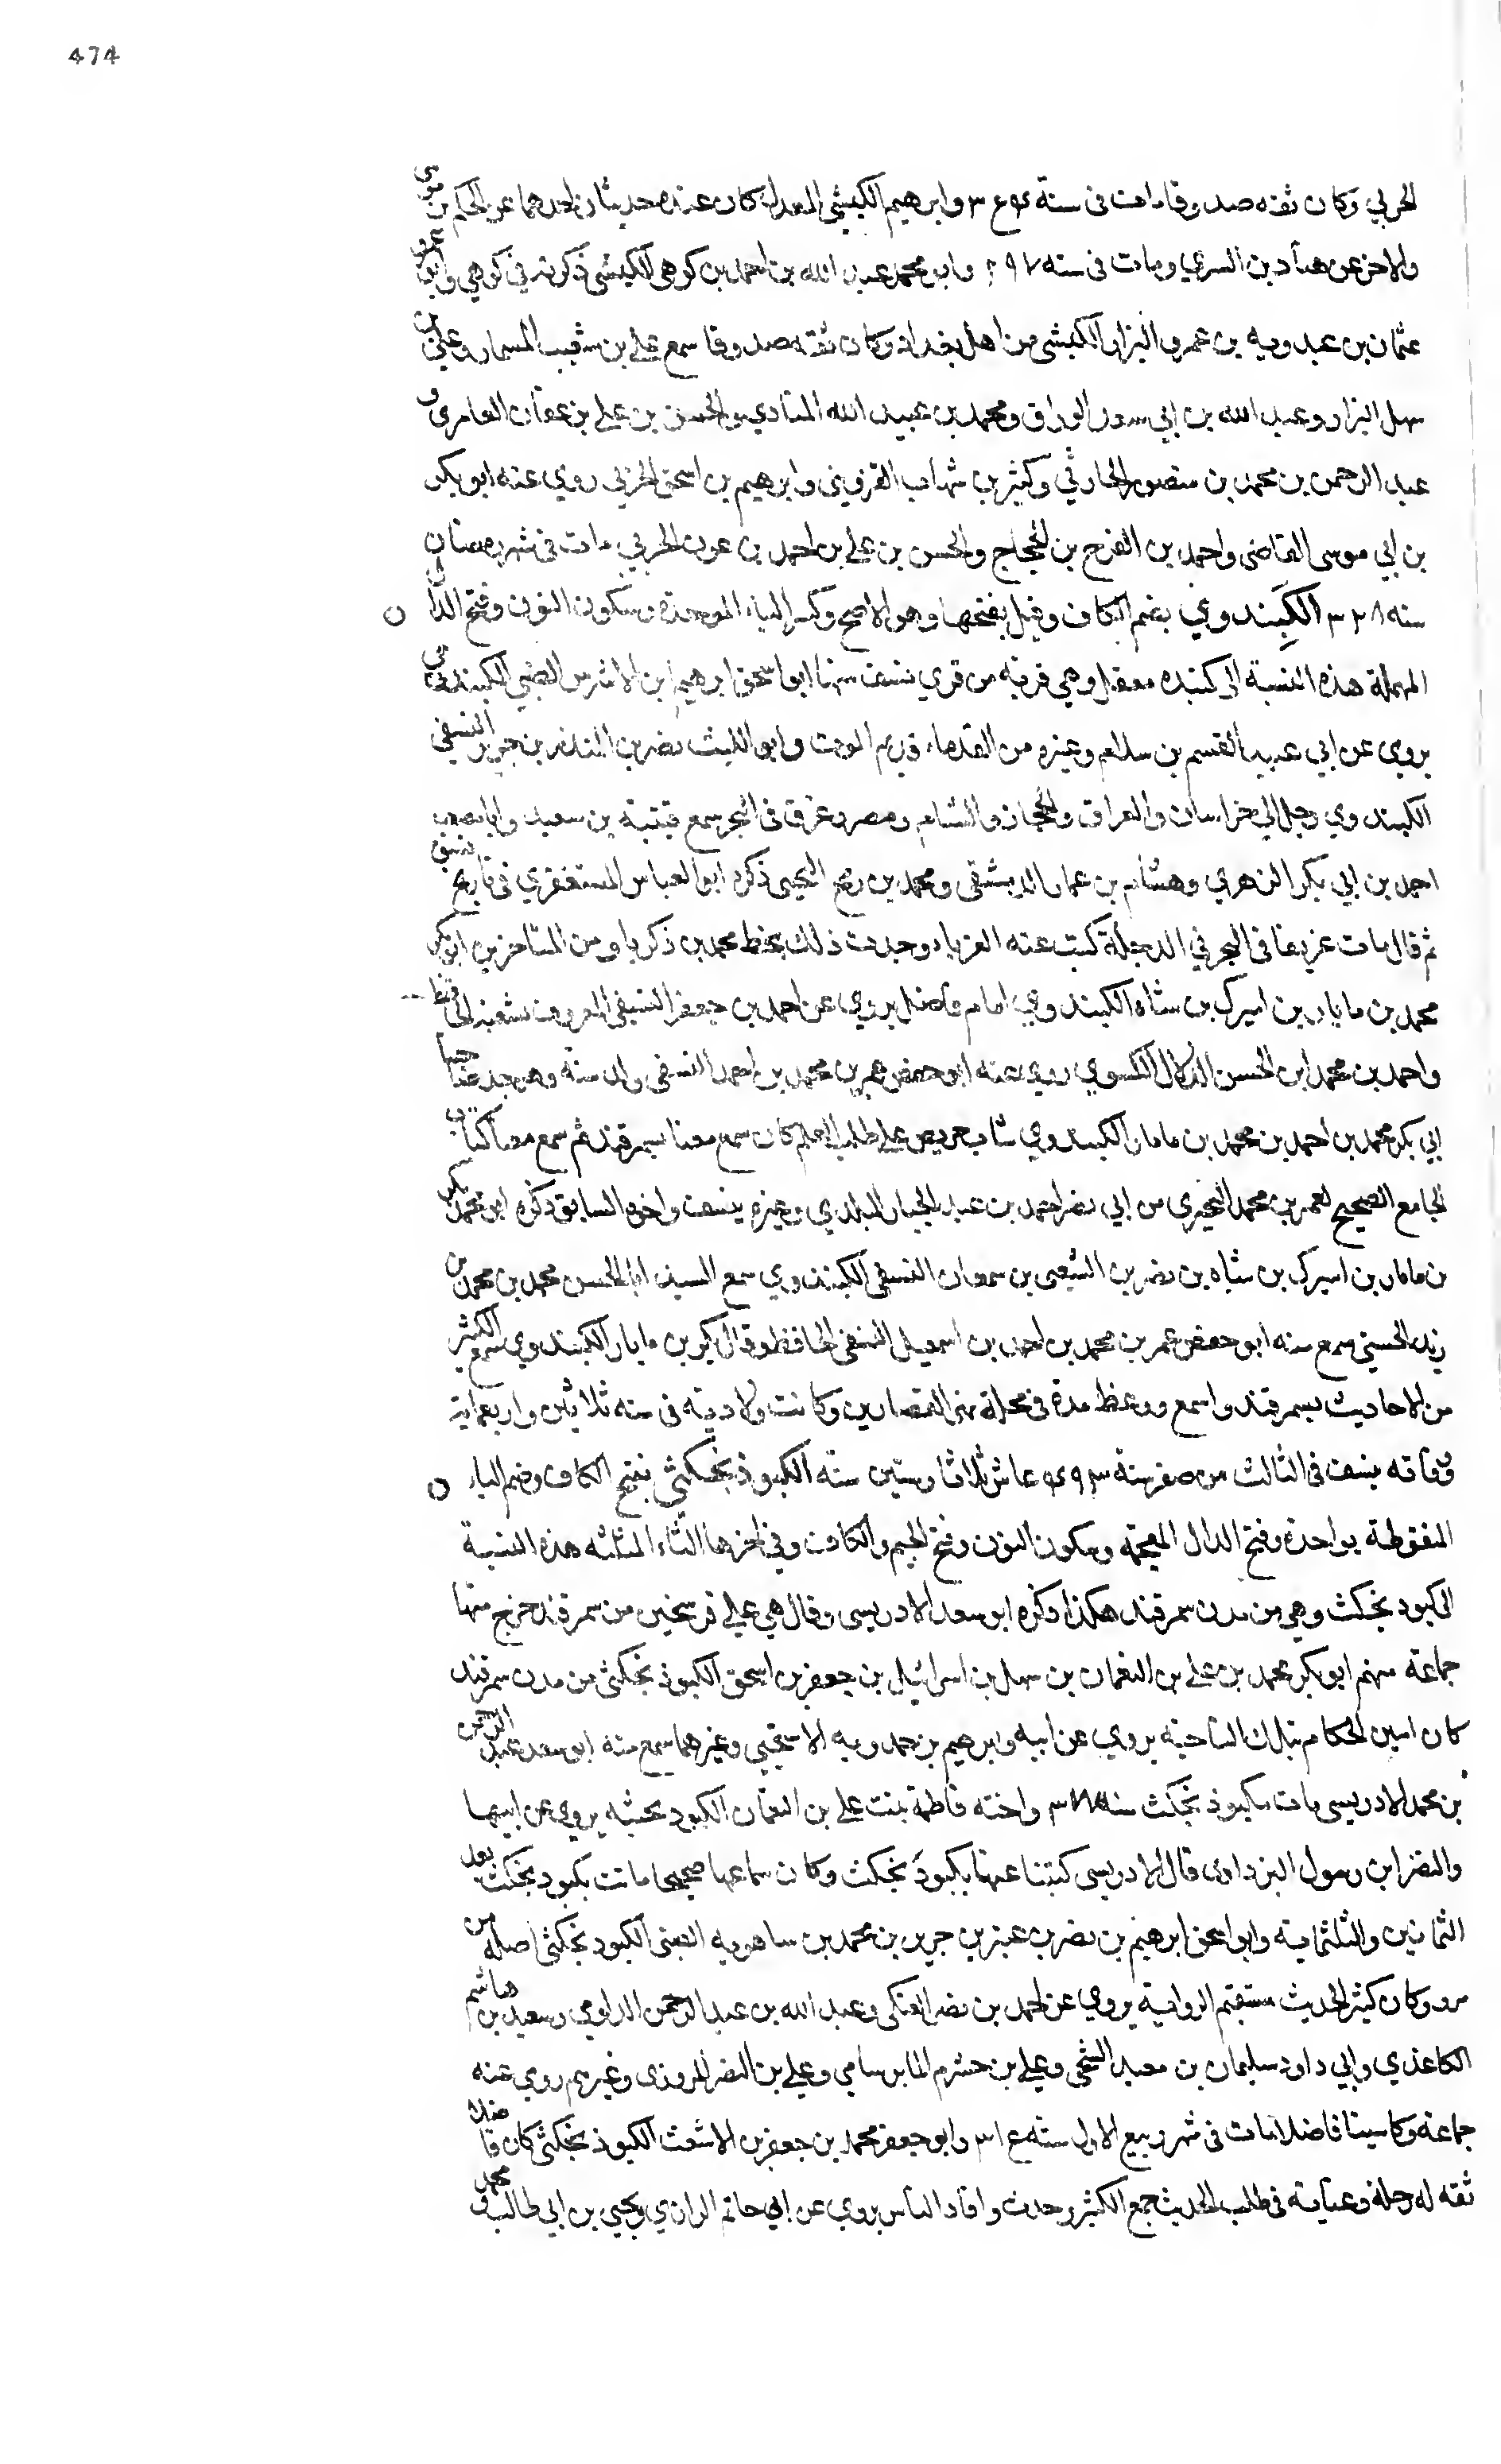 474
الحربي وكان ثقة صدوقا مات في سنة وابرهيم الكبشي المعدل كان عنده حديثان احدهما عن الحكم بن موسى
والاخر عن هناد بن السري ومات في سنة ٢٩٧ وابو محمد عبد الله بن احمد بن كوهي الكبشي ذكرته في كوهي وابو عمرو
عثمان بن عبدويه بن عمرو البزار الكبشي من اهل بغداد وكان ثقة صدوقا سمع علي بن شعيب السمسار وعلي بن
سهل البزار وعبد الله بن ابي سعد الوراق ومحمد بن عبيد الله المنادي والحسن بن علي بن عفان العامري و
عبد الرحمن بن محمد بن منصور الحارثي وكثير بن شهاب القزويني وابرهيم بن اسحق الحربي روى عنه ابو بكر
بن ابي موسى القاضي واحمد بن الفرج بن الحجاج والحسن بن علي بن احمد بن عون الحربي مات في شهر رمضان
سنه ٣٢٨ الكبندوي بضم الكاف وقيل بفتحها وهو الاصح وكسر الباء الموحدة وسكون النون وفتح الدال
المهملة هذه النسبة الى كبنده معقل وهي قرية من قرى نسف منها ابو اسحق ابرهيم بن الاشرس الضبي الكبندوي
يروي عن ابي عبيد القسم بن سلام وغيره من القدماء قديم الموت وابو الليث نصر بن المنذر بن جرير النسفي
الكبندوي رحل الى خراسان والعراق والحجاز والشام ومصر وغرق في البحر سمع قتيبة بن سعيد وابا مصعب
احمد بن ابي بكر الزهري وهشام بن عمار الدمشقي ومحمد بن رمح التجيبي ذكره ابو العباس المستغفري في تاريخ نسف
ثم قال مات غريقا في البحر في الدجلة كتبت عنه الغرباء وجدت ذلك بخط محمد بن زكريا ومن المتاخرين ابو بكر
محمد بن ماما بن اميرك بن شاه الكبندوي امام فاضل يروي عن احمد بن جعفر النسفي المعروف
واحمد بن محمد ابن الحسن روى عنه ابو حفص عمر بن محمد بن احمد النسفي وهو جد صاحبنا
ابي بكر محمد بن احمد بن محمد بن ماما الكبندوي شاب حريص على طلب العلم كان سمع معنا بسمرقند ثم سمع معنا كتاب
الجامع الصحيح لعمر بن محمد البجيري من ابي نصر احمد بن عبد الجبار البلدي وغيره بنسف واخوه السابق ذكره ابو محمد بكر
بن ماما بن اميرك بن شاه بن نصر بن الشعبي بن سمعان النسفي الكبندوي سمع السيد ابا الحسن محمد بن محمد بن
زيد الحسيني سمع منه ابو حفص عمر بن محمد بن احمد بن اسمعيل النسفي الحافظ وقال بكر بن ماما الكبندوي سمع الكثير
من الاحاديث بسمرقند واسمع ووعظ مدة في محلة نهر القصارين وكانت ولادته في سنه ثلاثين واربعماية
ووفاته بنسف في الثالث من صفر سنة ٤٩٣ عاش ثلاثا وستين سنه الكبوذنجكثي بفتح الكاف وضم الباء
المنقوطة بواحدة وفتح الذال المعجمة وسكون النون وفتح الجيم والكاف وفي اخرها الثاء المثلثه هذه النسبة
الى كبوذنجكث وهي من مدن سمرقند هكذا ذكره ابو سعد الادريسي وقال هي على فرسخين من سمرقند خرج منها
جماعة منهم ابو بكر محمد بن علي بن النعمان بن سهل بن اسرائيل بن جعفر بن اسحق الكبوذنجكثي من مدن سمرقند
كان امين الحكام بتلك الناحية يروي عن ابيه وابرهيم بن حمدويه الاشتيخني وغيرهما سمع منه ابو سعد عبد الرحمن
بن محمد الادريسي مات بكبوذنجكث سنه واخته فاطمة بنت علي بن النعمان الكبوذنجكثيه يروي عن ابيها
والنضر ابن رسول البزداوي قال الادريسي كتبنا عنها بكبوذنجكث وكان سماعها صحيحا ماتت بكبوذنجكث بعد
الثمانين والثلثماية وابو اسحق ابرهيم بن نصر بن عنبر بن جرير بن محمد بن ساهويه الضبي الكبوذنجكثي اصله من
مرو وكان كثير الحديث مستقيم الرواية يروي عن احمد بن نصر العتكي وعبد الله بن عبد الرحمن الدارمي وسعيد بن هاشم
الكاغذي وابي داود سليمان بن معبد السنجي وعلي بن خشرم المابرسامي وعلي بن النضر المروزي وغيرهم روى عنه
جماعة وكان سنيا فاضلا مات في شهر ربيع الاول سنه ٣١٤ وابو جعفر محمد بن جعفر بن الاشعث الكبوذنجكثي كان فاضلا
ثقه له رحلة وعناية في طلب الحديث جمع الكثير وحدث وافاد الناس يروي عن ابي حاتم الرازي ويحيى بن ابي طالب ومحمد